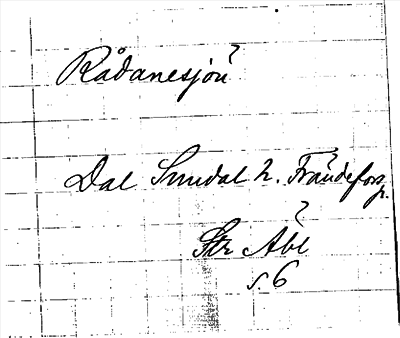 Rådanesjön
Dal Sundal h. Frändefors p.
Str Åbl
s. 6